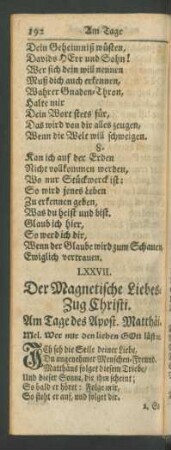 192 Am Tage
Dein Geheimniß wüsten,
Davids HErr und Sohn!
Wer sich dein will nennen
Muß dich auch erkennen,
Wahrer Gnaden-Thron,
Halte mir
Dein Wort stets für,
Das wird von dir alles zeugen,
Wenn die Welt will schweigen.
8.
Kan ich auf der Erden
Nicht vollkommen werden,
Wo nur Stückwerck ist:
So wird jenes Leben
Zu erkennen geben,
Was du heist und bist.
Glaub ich hier,
So werd ich dir,
Wenn der Glaube wird zum Schauen
Ewiglich vertrauen.
LXXVII.
Der Magnetische Liebes-
Zug Christi.
Am Tage des Apost. Matthäi.
Mel. Wer nur den lieben GOtt läst
Ich seh die Seile deiner Liebe,
Du angenehmer Menschen-Freund.
Matthäus folget diesem Triebe,
Und dieser Sonne, die ihm scheint;
So bald er höret: Folge mir,
So steht er auf, und folget dir.